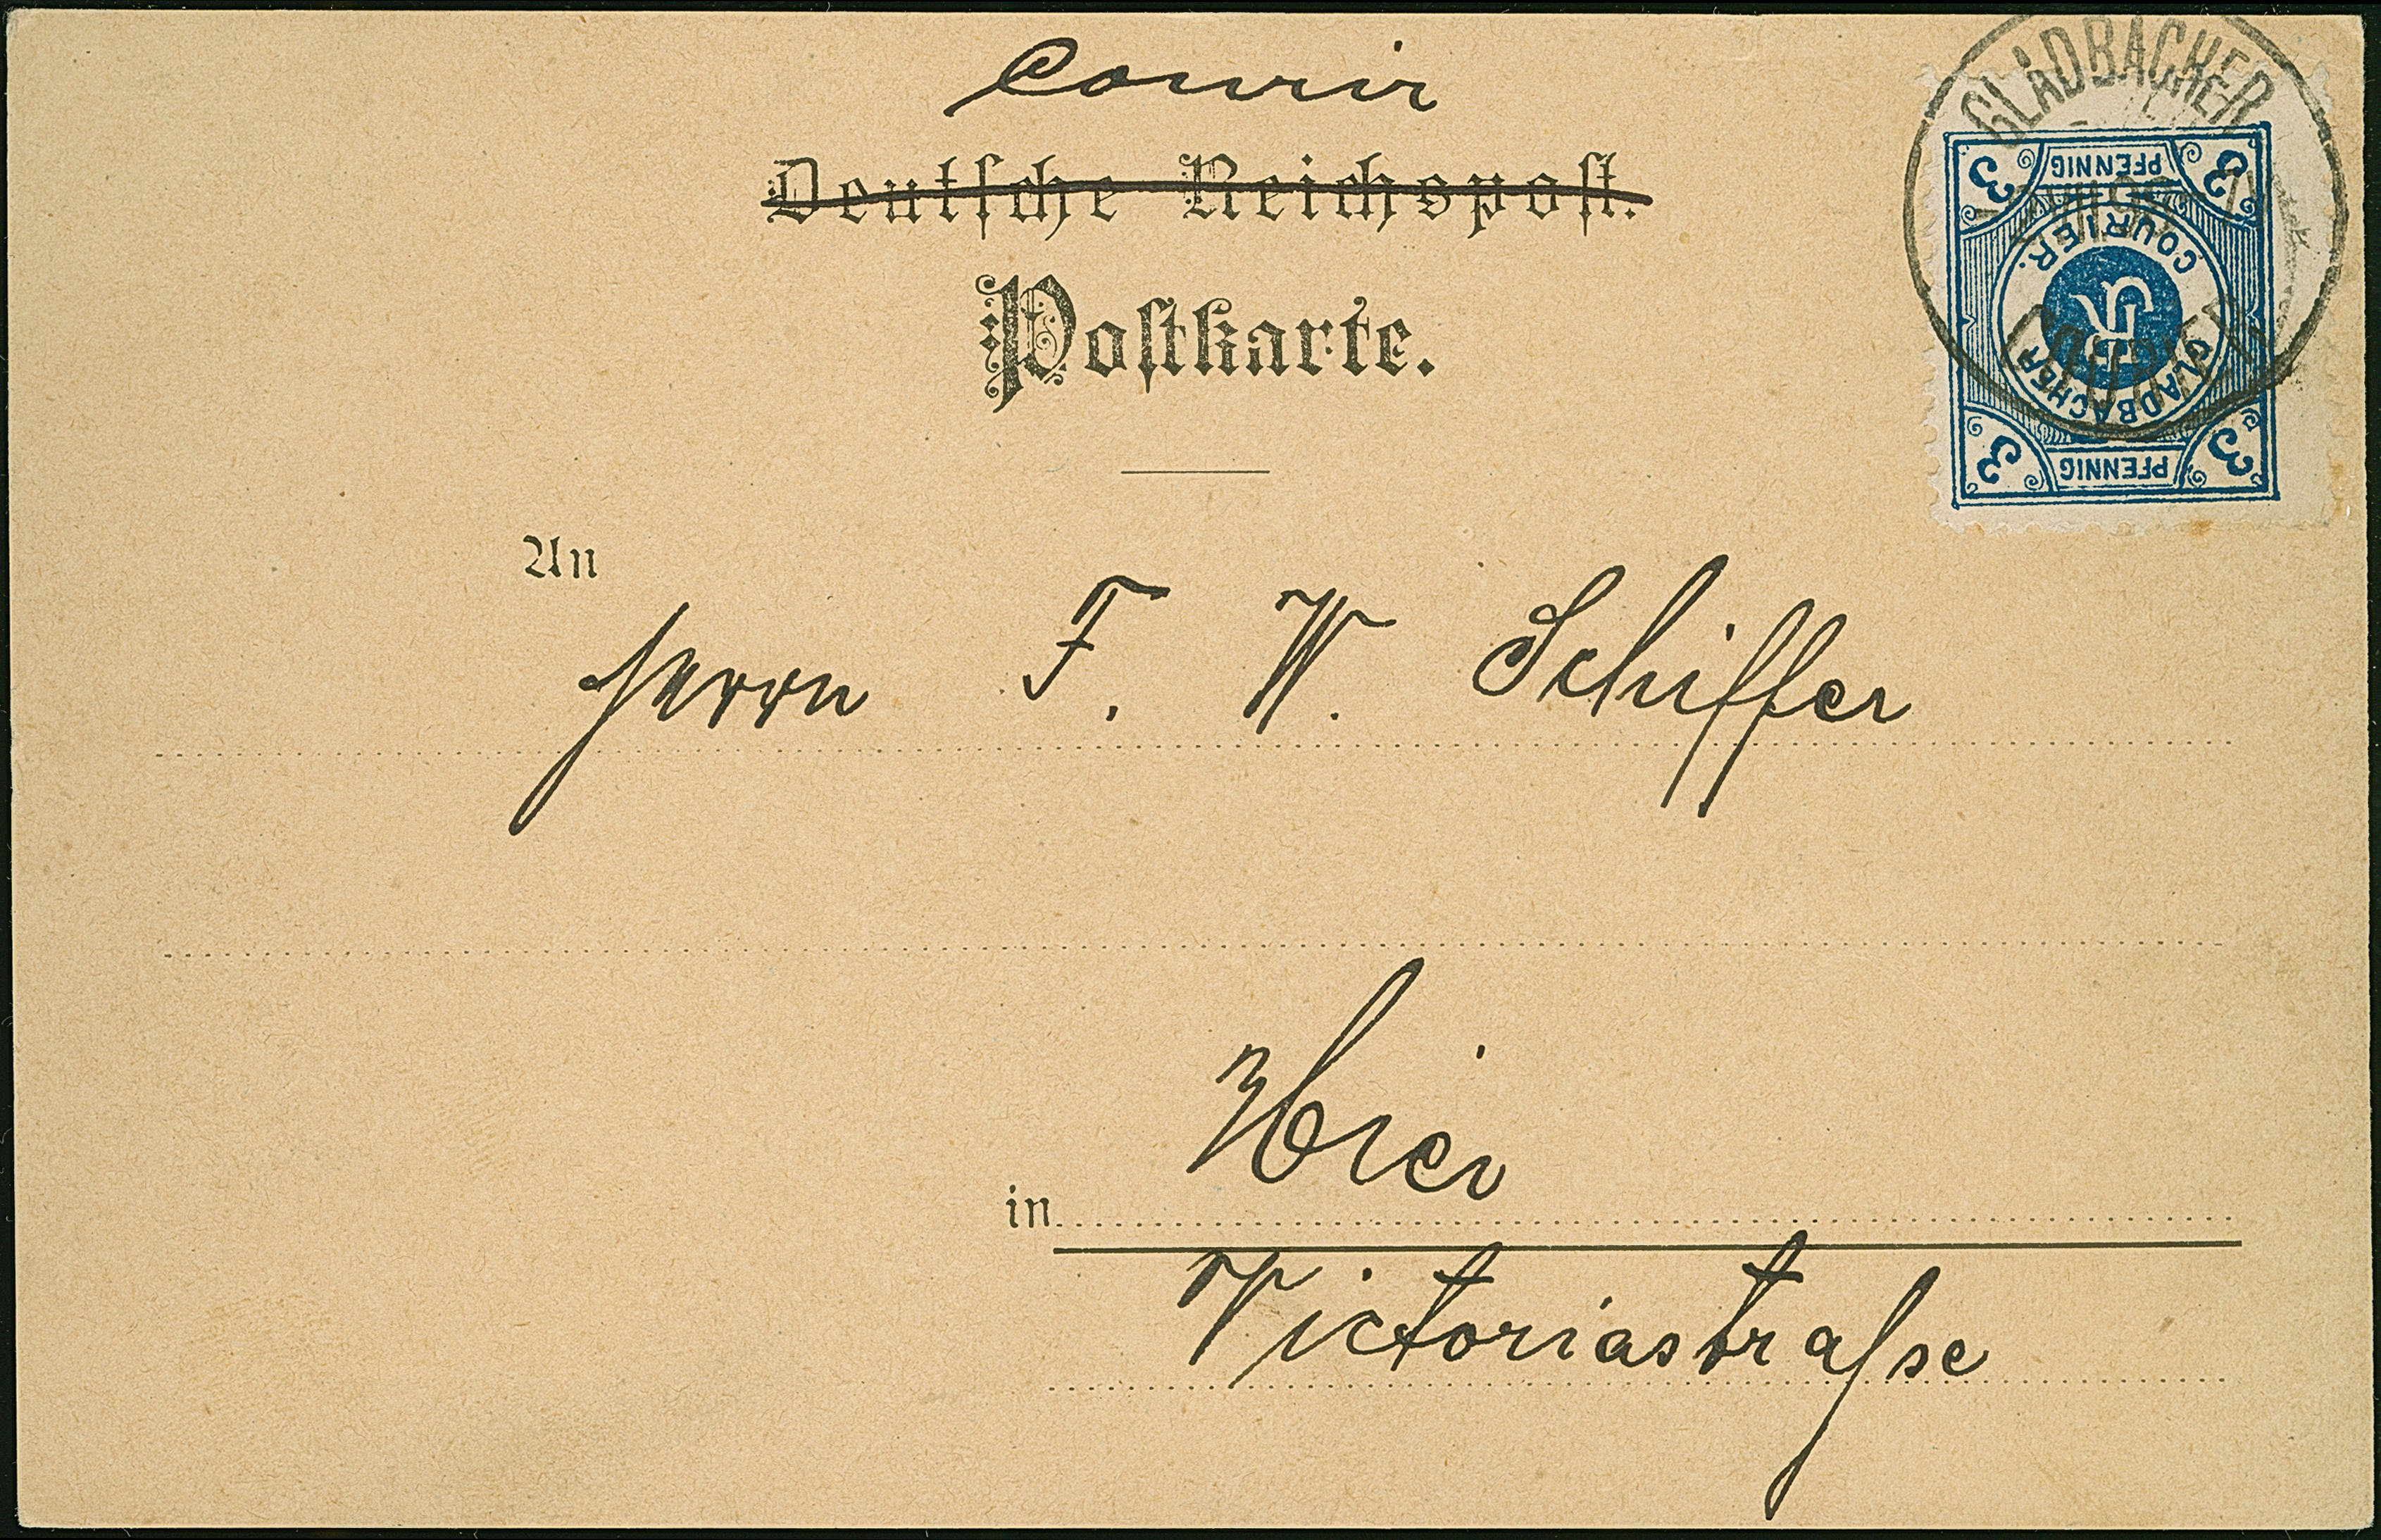 Courir
Deutsche Reichspost.
Postkarte.
GLADBACHER
3 PFENNIG 3
GLADBACHER COURIER.
3 PFENNIG 3
An
Herrn F. W. Schiffer
Hier
in
Victoriastraße